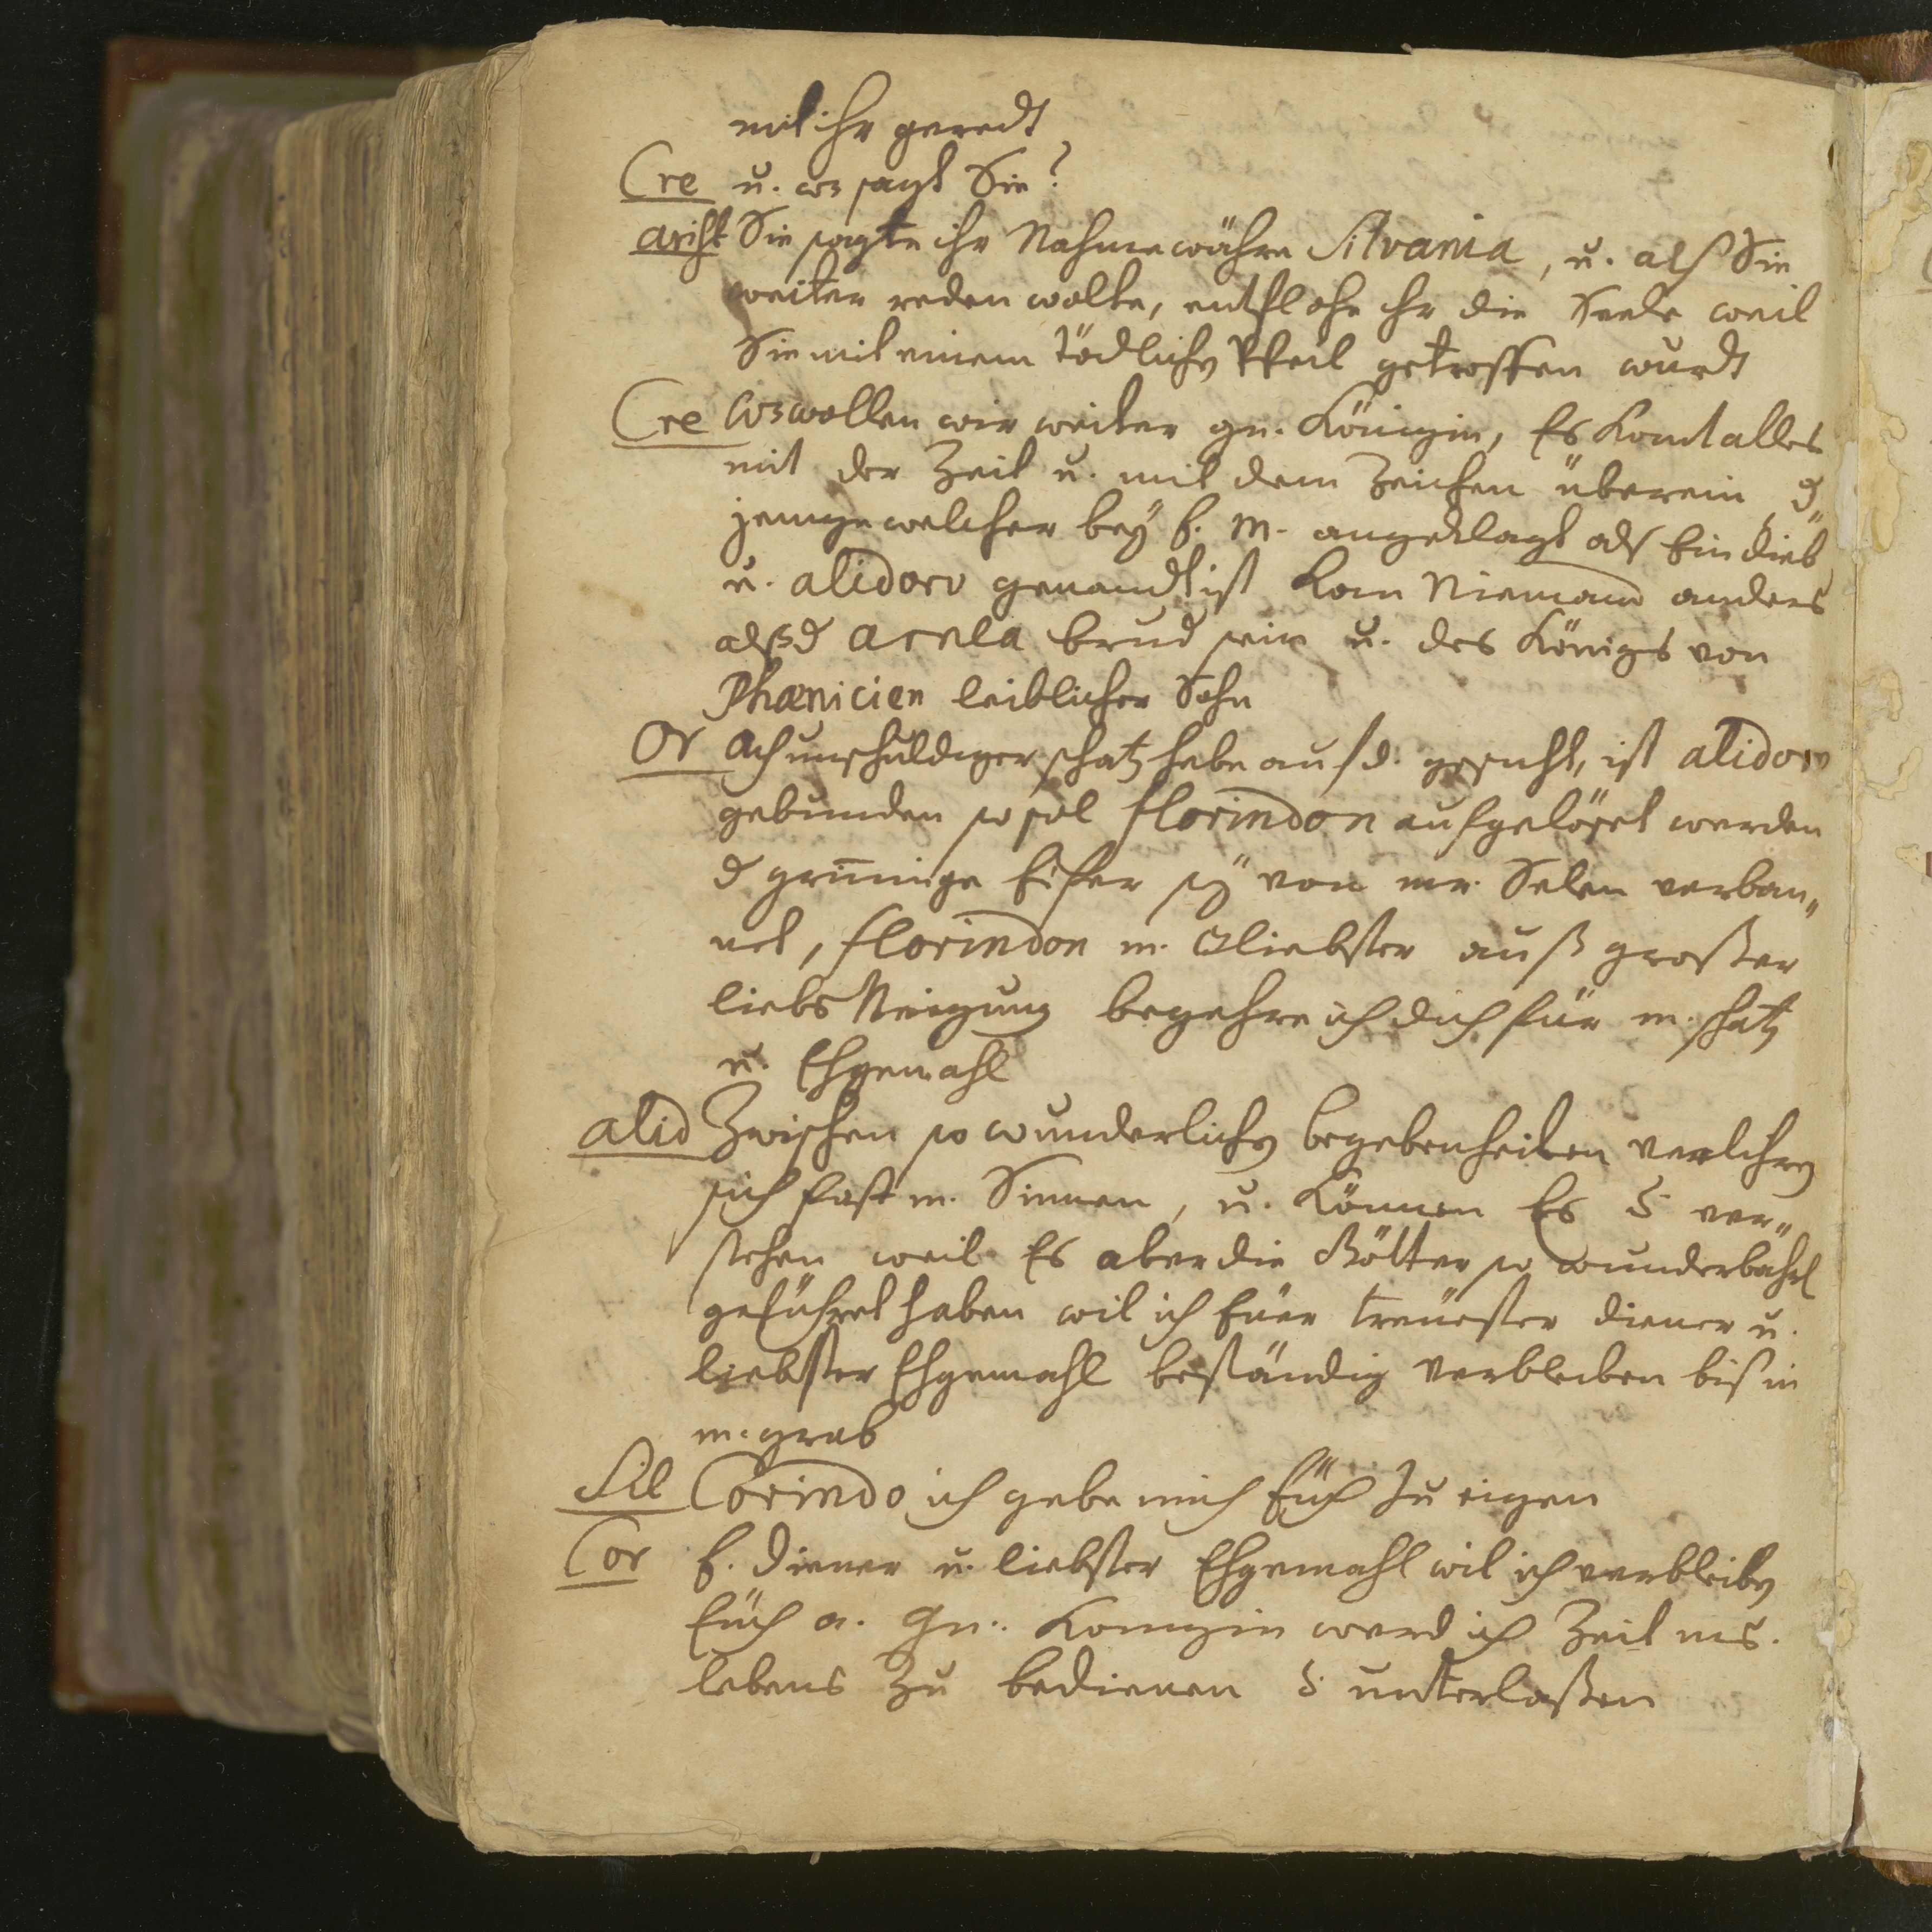 mit ihr geredt
Cre u. wz sagt Sie?
arist Sie sagte ihr Nahme währe Silvania, u. alß Sie
weiter reden wolte, entflohe ihr die Seele weil
Sie mit einem tödlichen Pfeil getroffen wurdt
Cre Wz wollen wir weiter gn. Königin, Es komt alles
mit der Zeit u. mit dem Zeichen überein, d„
jenige welcher bey E. M. angeklagt alß Ein dieb
u. alidoro genandt ist kan Niemand anders
alß d acela brud sein u. des Königs von
Phœnicien leiblicher Sohn
Or Ach unschuldiger schatz habe auf d. gesucht, ist alidoro
gebunden so sol florindon aufgelöset werden
d grimmige Eifer sey von mr. Selen verban„
net, florindon m. liebster auß großer
liebs Neigung begehre ich dich für m. schatz
u. Ehgemahl
alid Zwischen so wunderlichen begebenheiten verlihren
sich fast m. Sinnen, u. können Es ver„
stehen weil Es aber die Götter so wunderbahrl
geführet haben wil ich Euer treüester diener u.
liebster Ehgemahl beständig verbleiben biß in
m. grab
Sil Corindo ich gebe mich Eüch zu eigen
Cor E. diener u. liebster Ehgemahl wil ich verbleiben
Eüch a. Gn. Königin werd ich Zeit ms.
lebens zu bedienen unterlaßen